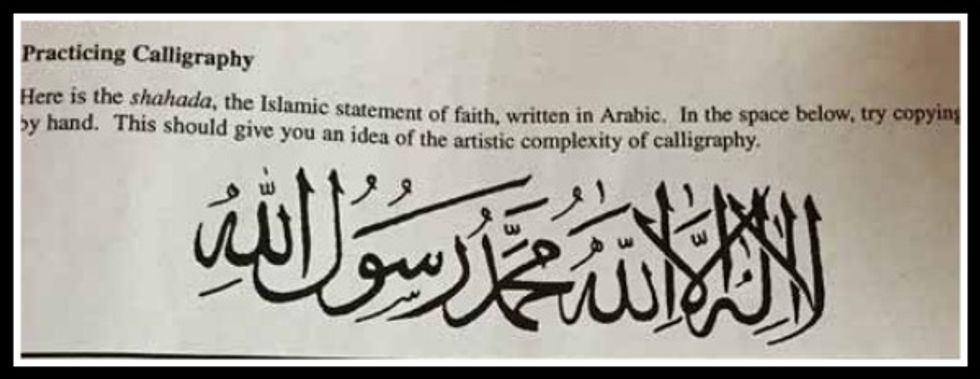 Practicing Calligraphy
Here is the shahada, the Islamic statement of faith, written in Arabic. In the space below, try copying
by hand. This should give you an idea of the artistic complexity of calligraphy.
لَا إِلٰهَ إِلَّا اللّٰهُ مُحَمَّدٌ رَسُولُ اللّٰهِ